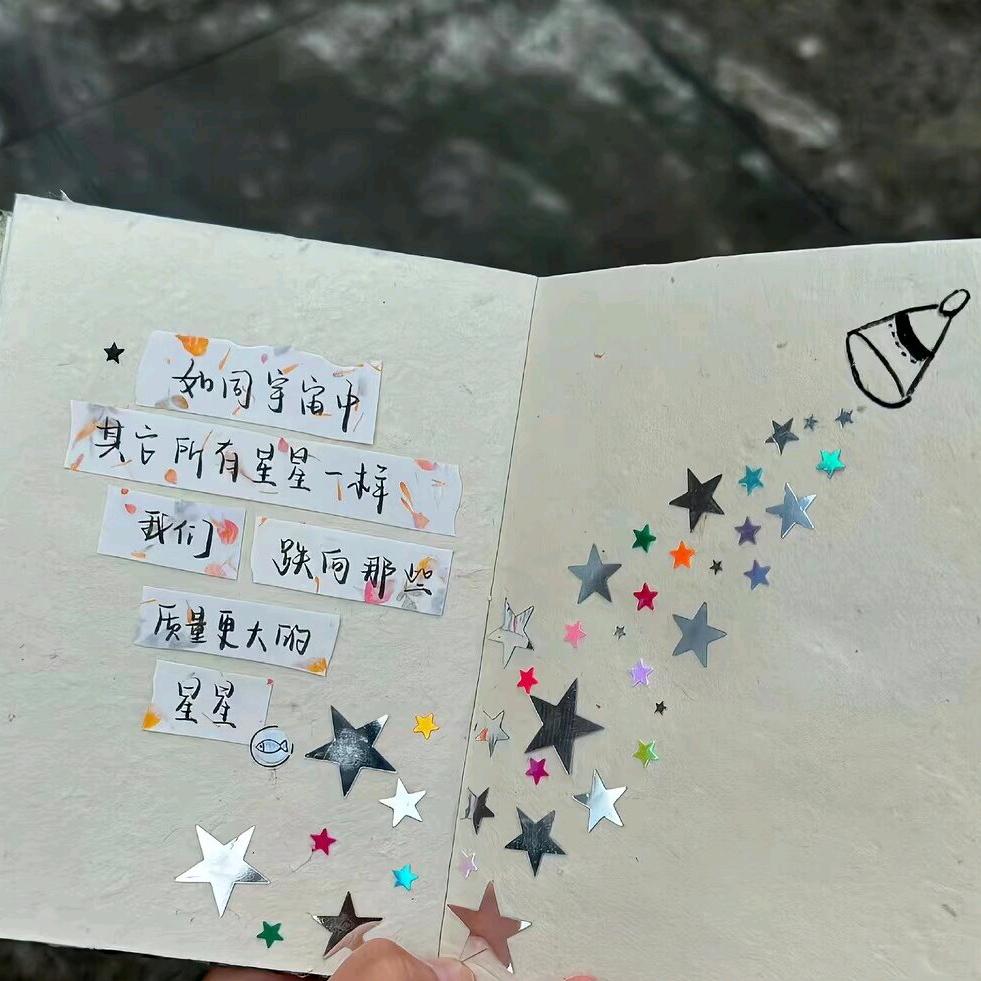 如同宇宙中
其它所有星星一样
我们 跌向那些
质量更大的
星星